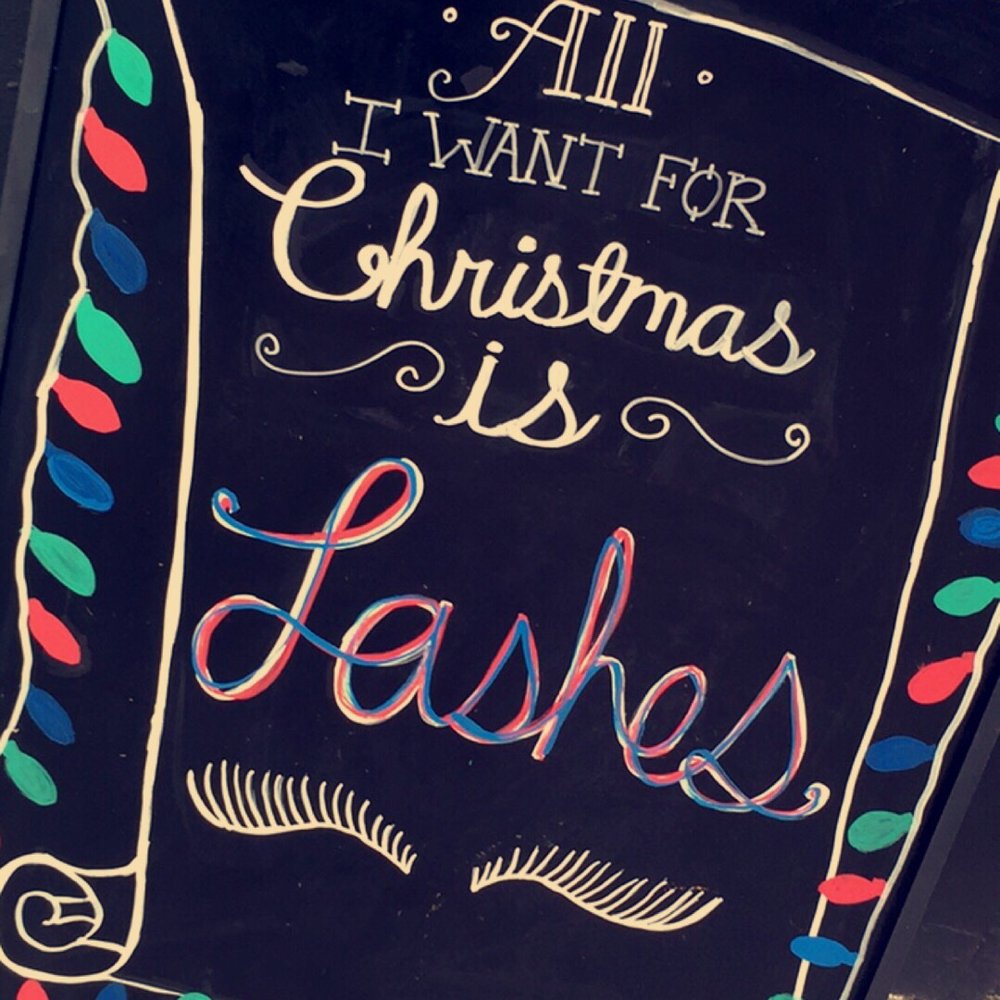 All
I WANT FOR
Christmas
is
Lashes